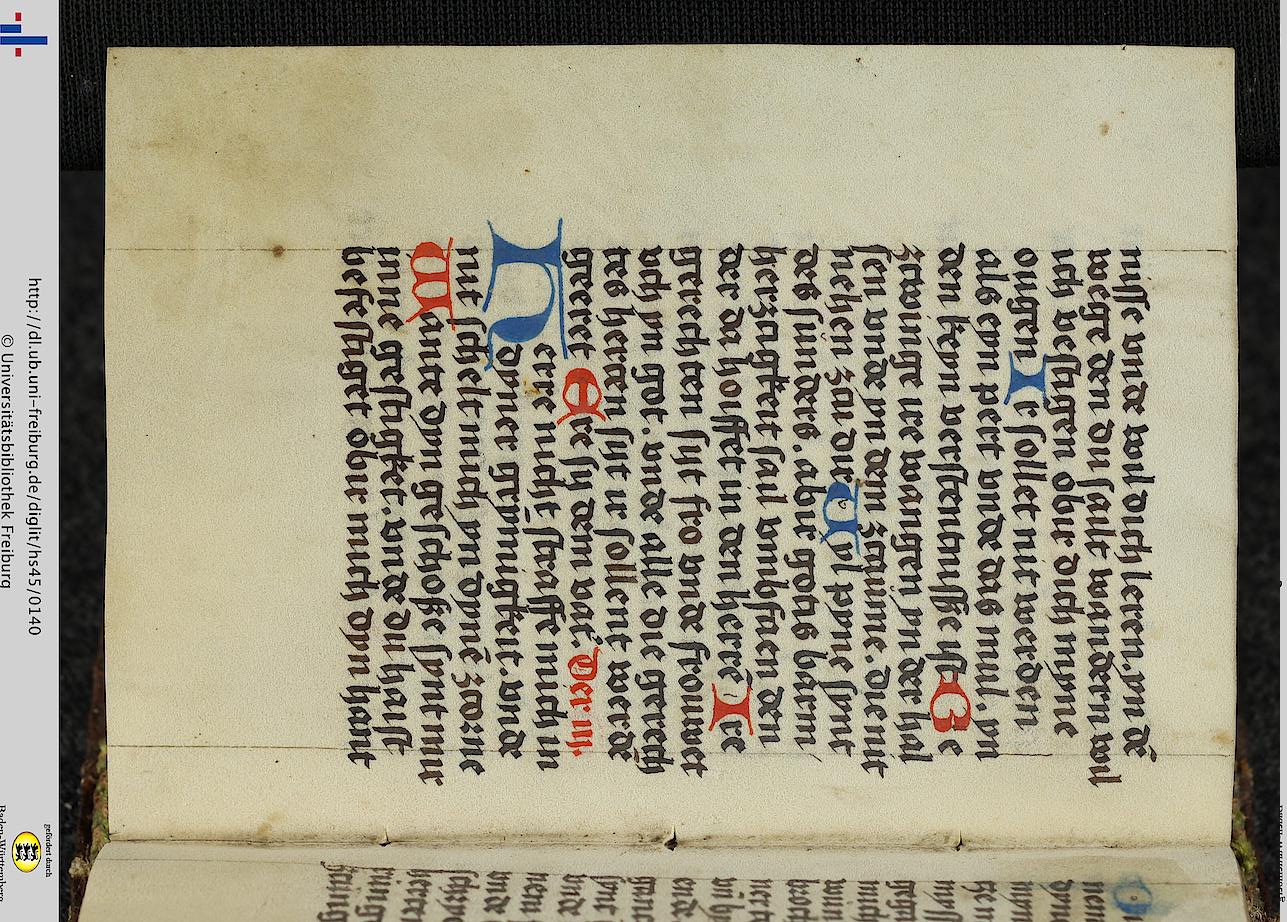 nisse unde wil dich leren. yn dē
wege den du salt wandern wil
ich vestigen obir dich myne
ougen Ir sollet nit werden
als eyn pert unde das mul. yn
den keyn verstentnisse ist Be
zwinge ire wangen yn der hal
sen unde yn dem zaume. die nit
nehen zau dir Vyl pyne synt
des sunders. abir gotis barm
herzigkeit sal umbfaen den
der da hoiffet in den herrē Ire
gerechten syt fro unde frowet
uch yn got. unde alle die gerech
tes herzen syt ir sollent werdē
geeret Ere sy dem vat'. Der iij.
Herre nicht straffe mich in
dyner grymigkeit unde
nit schelt mich yn dynē zorne
Wante dyn geschoße synt mir
inne gestigket. unde du haist
befestiget obir mich dyn hant
http://dl.ub.uni-freiburg.de/diglit/hs45/0140
© Universitätsbibliothek Freiburg
gefördert durch
Baden-Württemberg